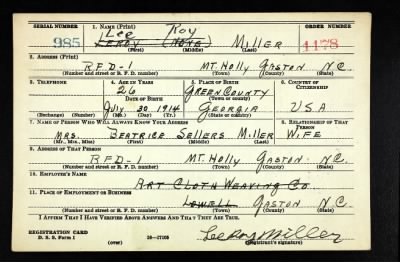 SERIAL NUMBER 1. NAME (Print) ORDER NUMBER
Lee Roy
985 LEROY (NONE) MILLER 1178
(First) (Middle) (Last)
2. ADDRESS (Print)
RFD-1 MT. HOLLY GASTON N.C.
(Number and street or R. F. D. number) (Town) (County) (State)
3. TELEPHONE 4. AGE IN YEARS 5. PLACE OF BIRTH 6. COUNTRY OF CITIZENSHIP
26 GREEN COUNTY
DATE OF BIRTH (Town or county)
July 30 1914 GEORGIA USA
(Exchange) (Number) (Mo.) (Day) (Yr.) (State or country)
7. NAME OF PERSON WHO WILL ALWAYS KNOW YOUR ADDRESS 8. RELATIONSHIP OF THAT PERSON
MRS. BEATRICE SELLERS MILLER WIFE
(Mr., Mrs., Miss) (First) (Middle) (Last)
9. ADDRESS OF THAT PERSON
RFD-1 MT. HOLLY GASTON N.C.
(Number and street or R. F. D. number) (Town) (County) (State)
10. EMPLOYER'S NAME
ART CLOTH WEAVING CO
11. PLACE OF EMPLOYMENT OR BUSINESS
LOWELL GASTON N C
(Number and street or R. F. D. number) (Town) (County) (State)
I AFFIRM THAT I HAVE VERIFIED ABOVE ANSWERS AND THAT THEY ARE TRUE.
REGISTRATION CARD
D. S. S. Form 1 (over) 16-17105 LeRoy Miller
(Registrant's signature)